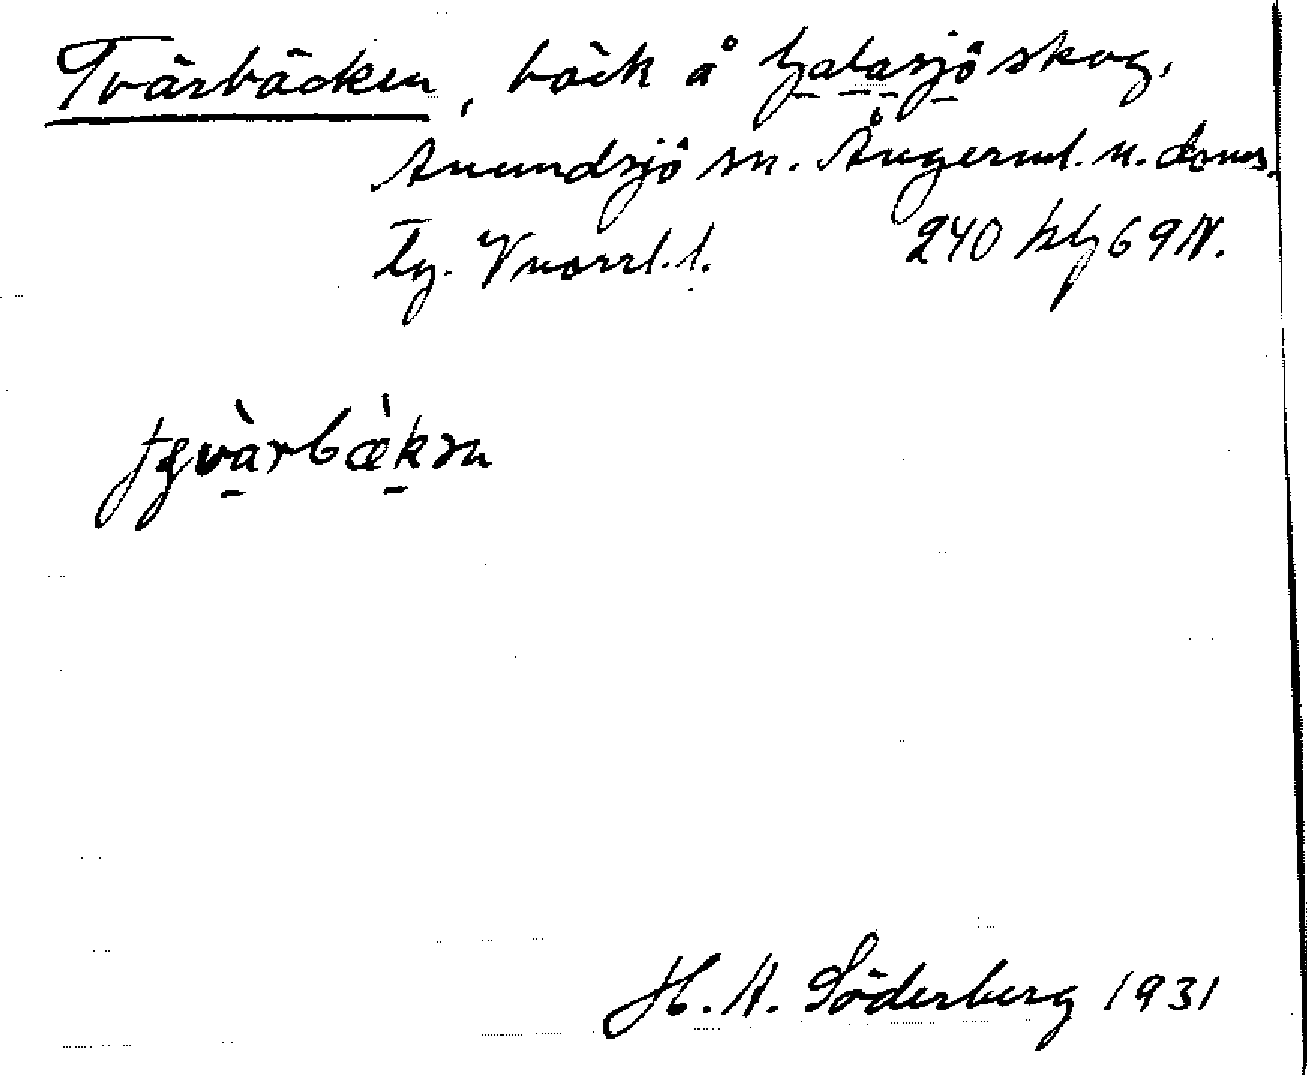 Tvärbäcken, bäck å Galasjö skog,
Anundsjö sn. Ångerml. n. doms.
Tg. Vnorrl. l. 240 kbg 69 N.
H. A. Söderberg 1931